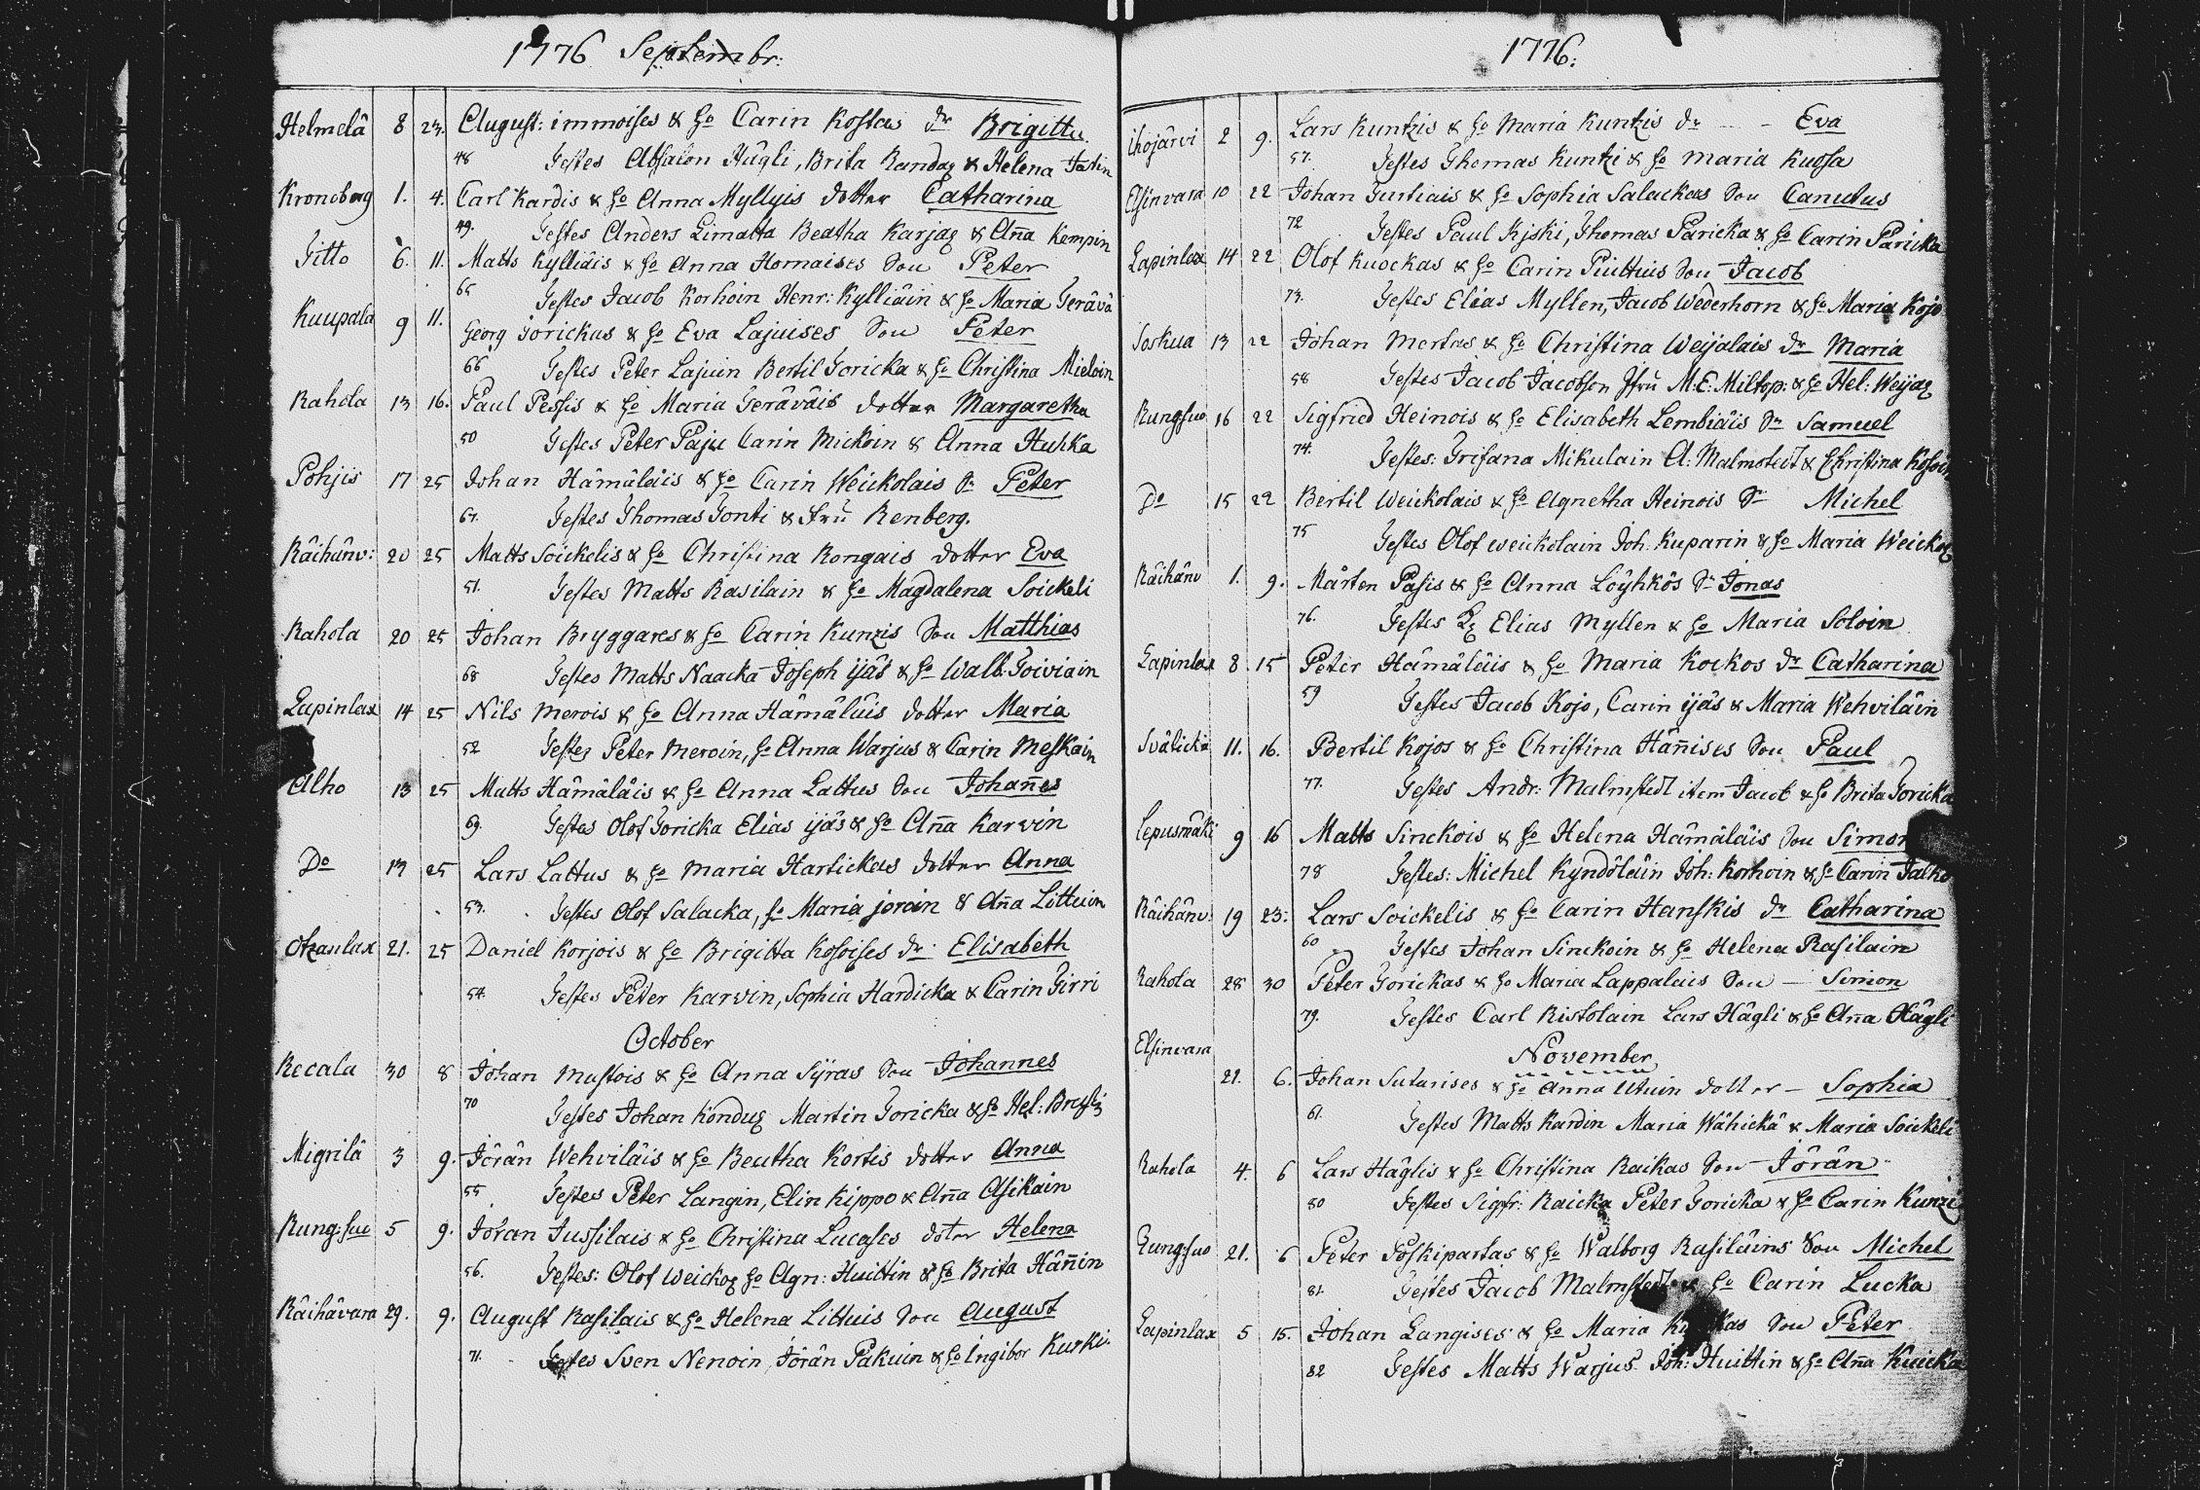 1776 Septembr:
Helmelä 8 23. August: immoises & Ho Carin Kostas dr Brigitta
48 Testes Absalon Hägli, Brita Randaz & Helena Tastin
Kronoberg 1. 4. Carl Kardis & Ho Anna Myllyis dotter Catharina
49. Testes Anders Limatta Beatha Karjaz & Aña Kempin
Titto 6. 11. Matts Kylliäis & Ho Anna Homaises Son Peter
65 Testes Jacob Korhoin Henr: Kylliäin & Ho Maria Terävä
Kuupala 9 11. Georg Torickas & Ho Eva Lajuises Son Peter
66 Testes Peter Lajuin Bertil Toricka & Ho Christina Mieloin
Rahola 13 16. Paul Pessis & Ho Maria Teräväis dotter Margaretha
50 Testes Peter Paju Carin Mickoin & Anna Huhka
Pohjis 17 25 Johan Hämäläis & Ho Carin Weickolais Sn Peter
67. Testes Thomas Tonti & Fru Renberg.
Räihäv: 20 25 Matts Soickelis & Ho Christina Kongais dotter Eva
51. Testes Matts Rasilain & Ho Magdalena Soickeli
Rahola 20 25 Johan Bryggares & Ho Carin Kunzis Son Matthias
68 Testes Matts Naacka Joseph ijäs & Ho Walb: Toiviain
Lapinlax 14 25 Nils Merois & Ho Anna Hämäläis dotter Maria
52 Testes Peter Meroin, Ho Anna Warjus & Carin Meskain
Alho 13 25 Matts Hämäläis & Ho Anna Lattus Son Johañes
69. Testes Olof Toricka Elias ijäs & Ho Aña Karvin
Do 13 25 Lars Lattus & Ho Maria Hartickas dotter Anna
53. Testes Olof Salacka, Ho Maria jeroin & Aña Littuin
Otzanlax 21. 25 Daniel Korjois & Ho Brigitta Kosoises dr Elisabeth
54. Testes Peter Karvin, Sophia Hardicka & Carin Tirri
October
Recala 30 8 Johan Mustois & Ho Anna Syras Son Johannes
70 Testes Johan Konduz Martin Toricka & Ho Hel:
Migrilä 3 9. Jörän Wehviläis & Ho Beatha Kortis dotter Anna
55 Testes Peter Langin, Elin Kippo & Aña Asikain
Rungsuo 5 9. Jöran Jussilais & Ho Christina Lucases doter Helena
56. Testes: Olof Weickoz Ho Agn: Huittin & Ho Brita Häñin
Räihävara 29. 9. August Rasilais & Ho Helena Littuis Son August
71. Testes Sven Nenoin, Jörän Pakuin & Ho Ingibor Kurki
1776.
ihojärvi 2 9. Lars Kuntzis & Ho Maria Kuntzis dr – Eva
57. Testes Thomas Kuntzi & Ho Maria Kuosa
Elsinvara 10 22 Johan Turtiais & Ho Sophia Salackas Son Canutus
72 Testes Paul Kjski, Thomas Paricka & Ho Carin Paricka
Lapinlax 14 22 Olof Kuockas & Ho Carin Piuttius Son Jacob
73. Testes Elias Myllen, Jacob Wederhorn & Ho Maria Kojo
Soskua 13 22 Johan Mertas & Ho Christina Weijalais dr Maria
58 Testes Jacob Jacobson Jfru M: E: Miltop: & Ho Hel: Weijaz
Rungsuo 16 22 Sigfried Heinois & Ho Elisabeth Lembiäis Sn Samuel
74. Testes: Grifana Mikulain A: Malmstedt & Christina Kosoi
Do 15 22 Bertil Weickolais & Ho Agnetha Heinois Sn Michel
75 Testes Olof weickolain Joh. Kuparin & Ho Maria Weickoz
Räihäv 1. 9. Mårten Pasis & Ho Anna Löyhkös Sn Jonas
76. Testes Elias Myllen & Ho Maria Soloin
Lapinlax 8. 15 Peter Hämäläis & Ho Maria Kockos dr Catharina
59 Testes Jacob Kojo, Carin ijäs & Maria Wehviläin
Svälickä 11. 16. Bertil Kojos & Ho Christina Häñises Son Paul
77. Testes Andr: Malmstedt item Jacob & Ho Brita Toricka
Lepusmäki 9 16 Matts Sinckois & Ho Helena Hämäläis Son Simon
78 Testes: Michel Kyndöläin Joh: Korhoin & Ho Carin Talko
Räihäv: 19 23: Lars Soickelis & Ho Carin Hanskis dr Catharina
60 Testes Johan Sinckoin & Ho Helena Rasilain
Rahola 28 30 Peter Torickas & Ho Maria Lappalais Son – Simon
79. Testes Carl Ristolain Lars Hägli & Ho Aña Hägli
November
Elsinvara 21. 6. Johan Sutarises & Ho Anna Utuin dotter – Sophia
61. Testes Matts Kardin Maria Wähickä & Maria Soickeli
Rahola 4. 6 Lars Häglis & Ho Christina Raikas Son Jörän
80 Testes Sigfr: Raicka Peter Toricka & Ho Carin Kunzi
Rungsuo 21. 6 Peter Poskipartas & Ho Walborg Rasiläins Son Michel
81. Testes Jacob Malmstedt & Ho Carin Lucka
Lapinlax 5 15. Johan Langises & Ho Maria Son Peter
82 Testes Matts Warjus Joh: Huittin & Ho Aña Kuicka